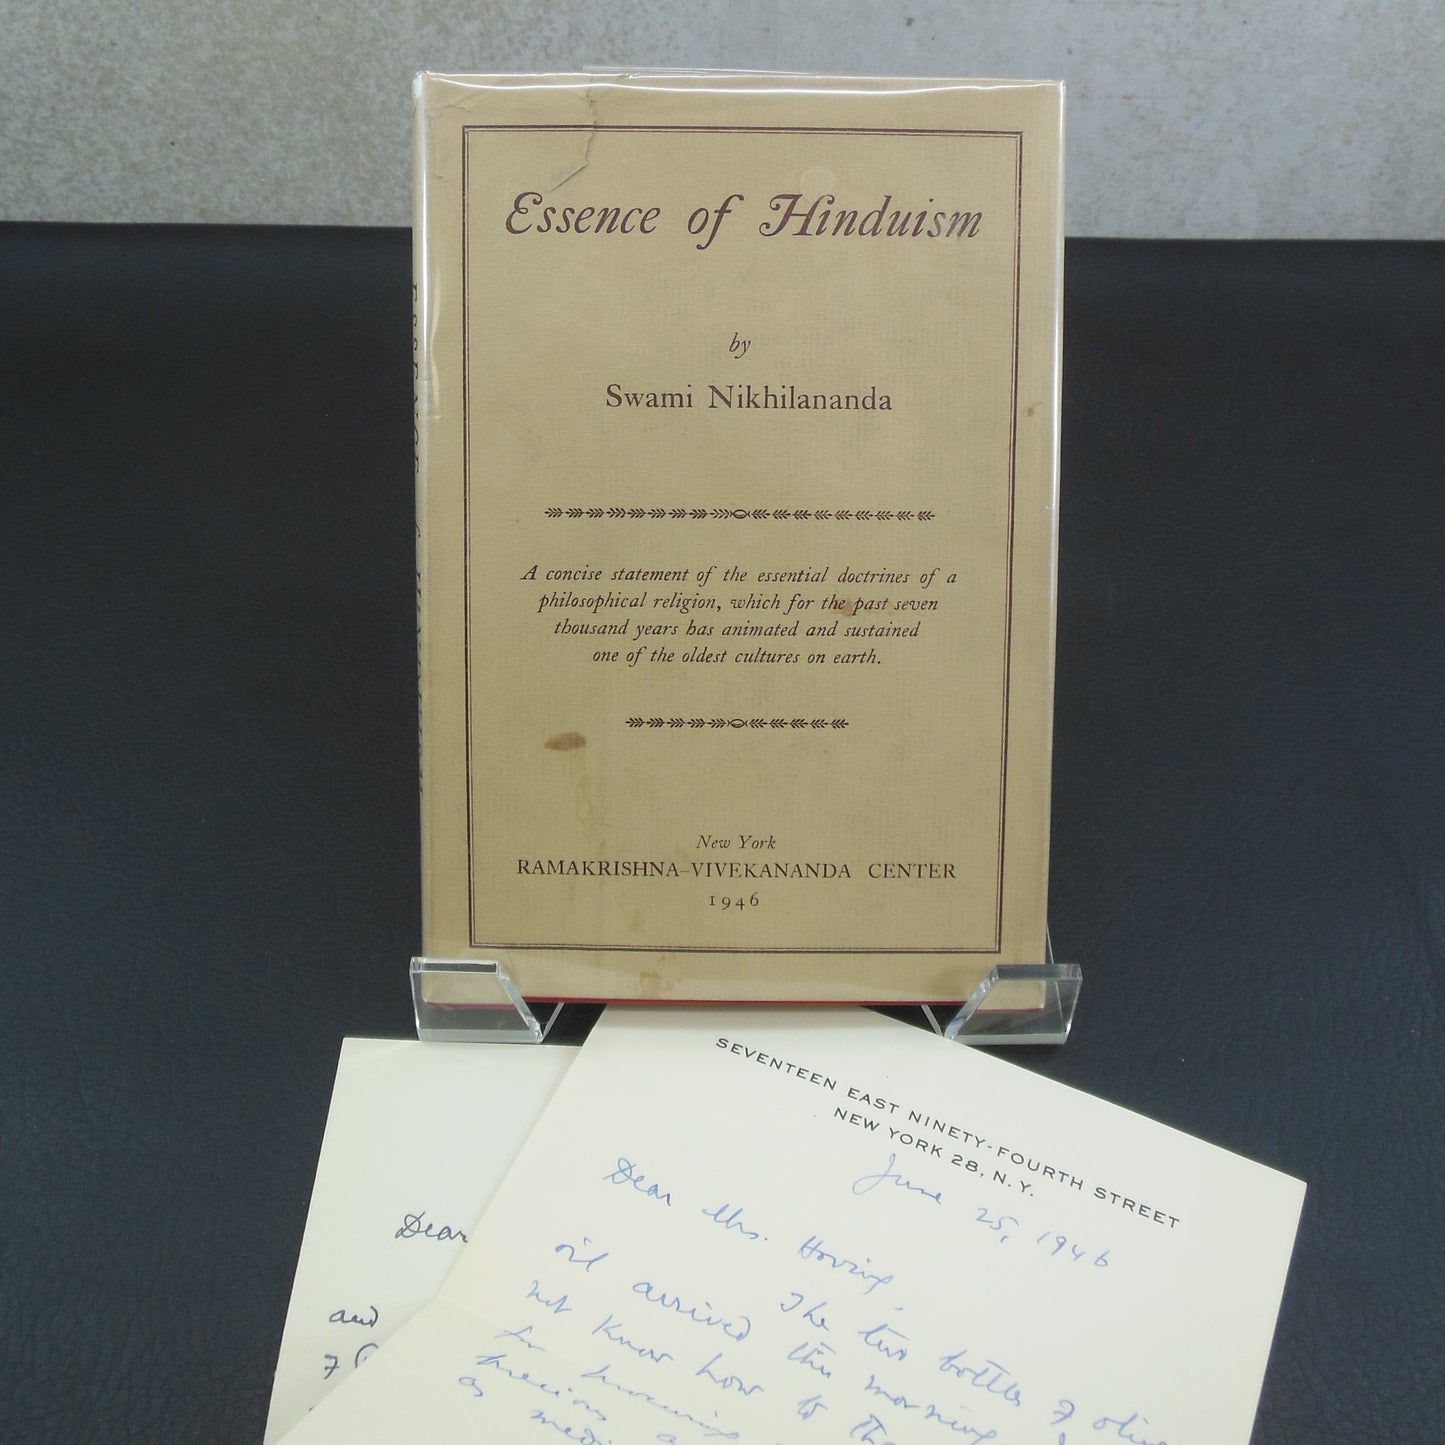 Essence of Hinduism
by
Swami Nikhilananda
A concise statement of the essential doctrines of a
philosophical religion, which for the past seven
thousand years has animated and sustained
one of the oldest cultures on earth.
New York
RAMAKRISHNA-VIVEKANANDA CENTER
1946
SEVENTEEN EAST NINETY-FOURTH STREET
NEW YORK 28, N. Y.
June 25, 1946
Dear Mrs. Hoving,
The two bottles of olive
oil arrived this morning
not know how to
for procuring
precious
as
Dear
and